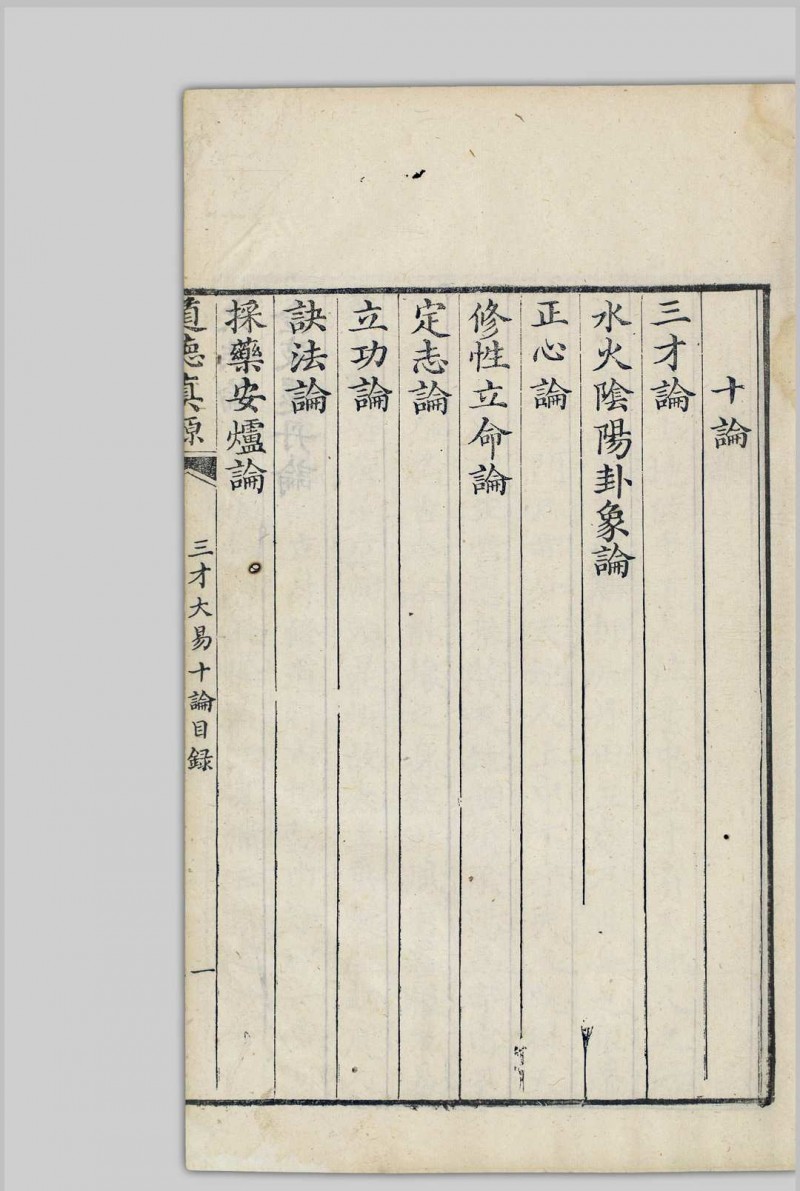 十論
三才論
水火陰陽卦象論
正心論
修性立命論
定志論
立功論
訣法論
採藥安爐論
道德真源
三才大易十論目録
一